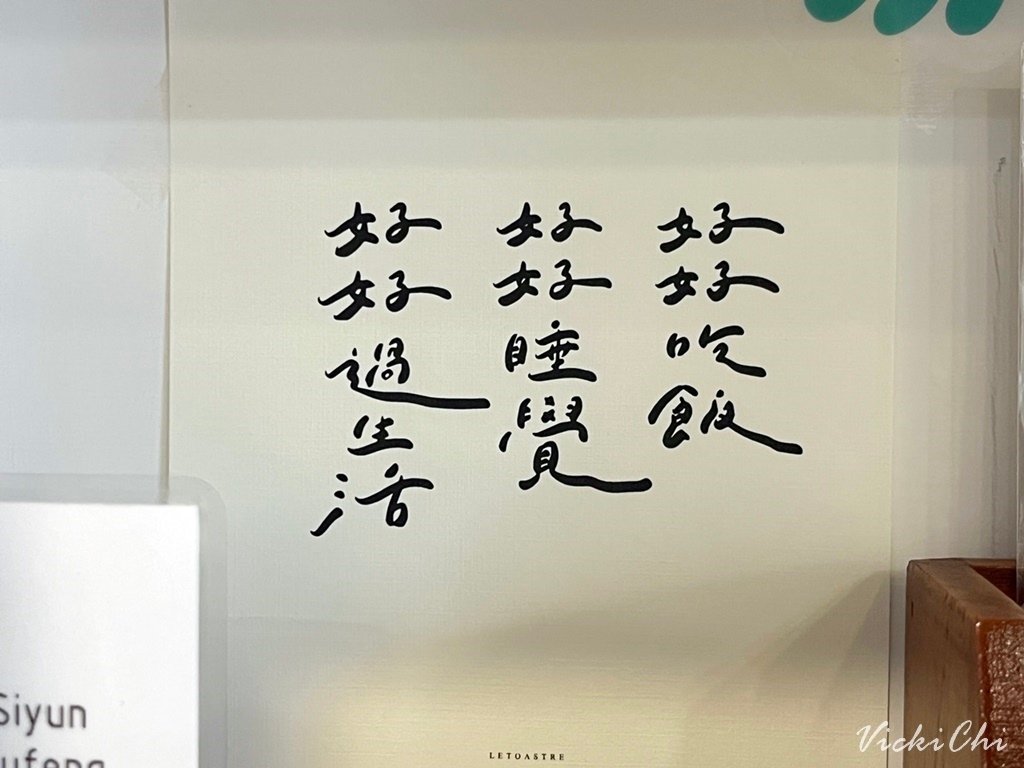 好好吃飯
好好睡覺
好好過生活
LETOASTRE
Siyun
ufeng
VickiChi